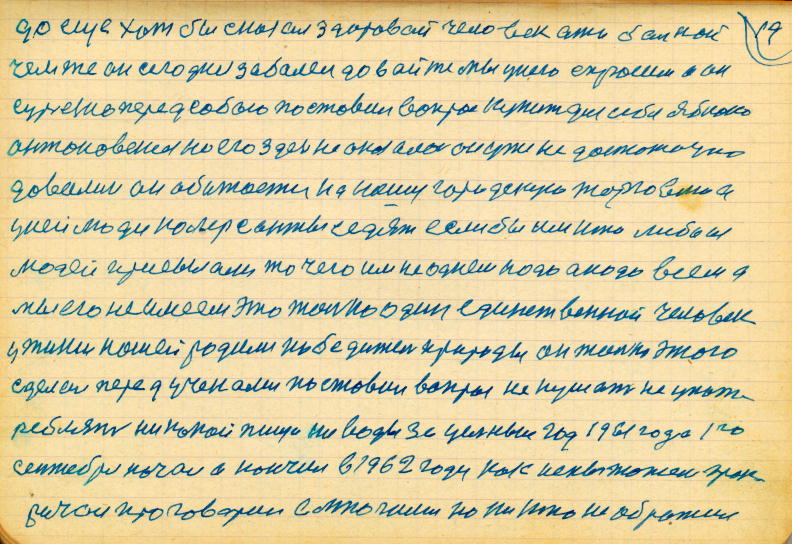 до еще хотя бы сказал здоровай человек ати балной 19
чемже он сегодне забалел довайте мы унего спросим а он
сурезно перед собаю поставил вопрос купить для себя яблоко
антоновския но его здеи не оказалос он уже не достоточно
довалин он обижаетця на нашу гарадскую тарговлю а
уней люди камерсанты седят если бы им кто любил
людей присылали то чего им не однем нодо а нодо всем а
мы его не имеем это толко один единственной человек
ужини нашей родили победител природы он толко этого
сделал перед учеками поставил вопрос не кушать не упот
реблять никокой пищи ни воды за целный год 1961 года 1 го
сентебря начал а кончил в 1962 году как
ричал проговарил с молчанием но никто не обратил